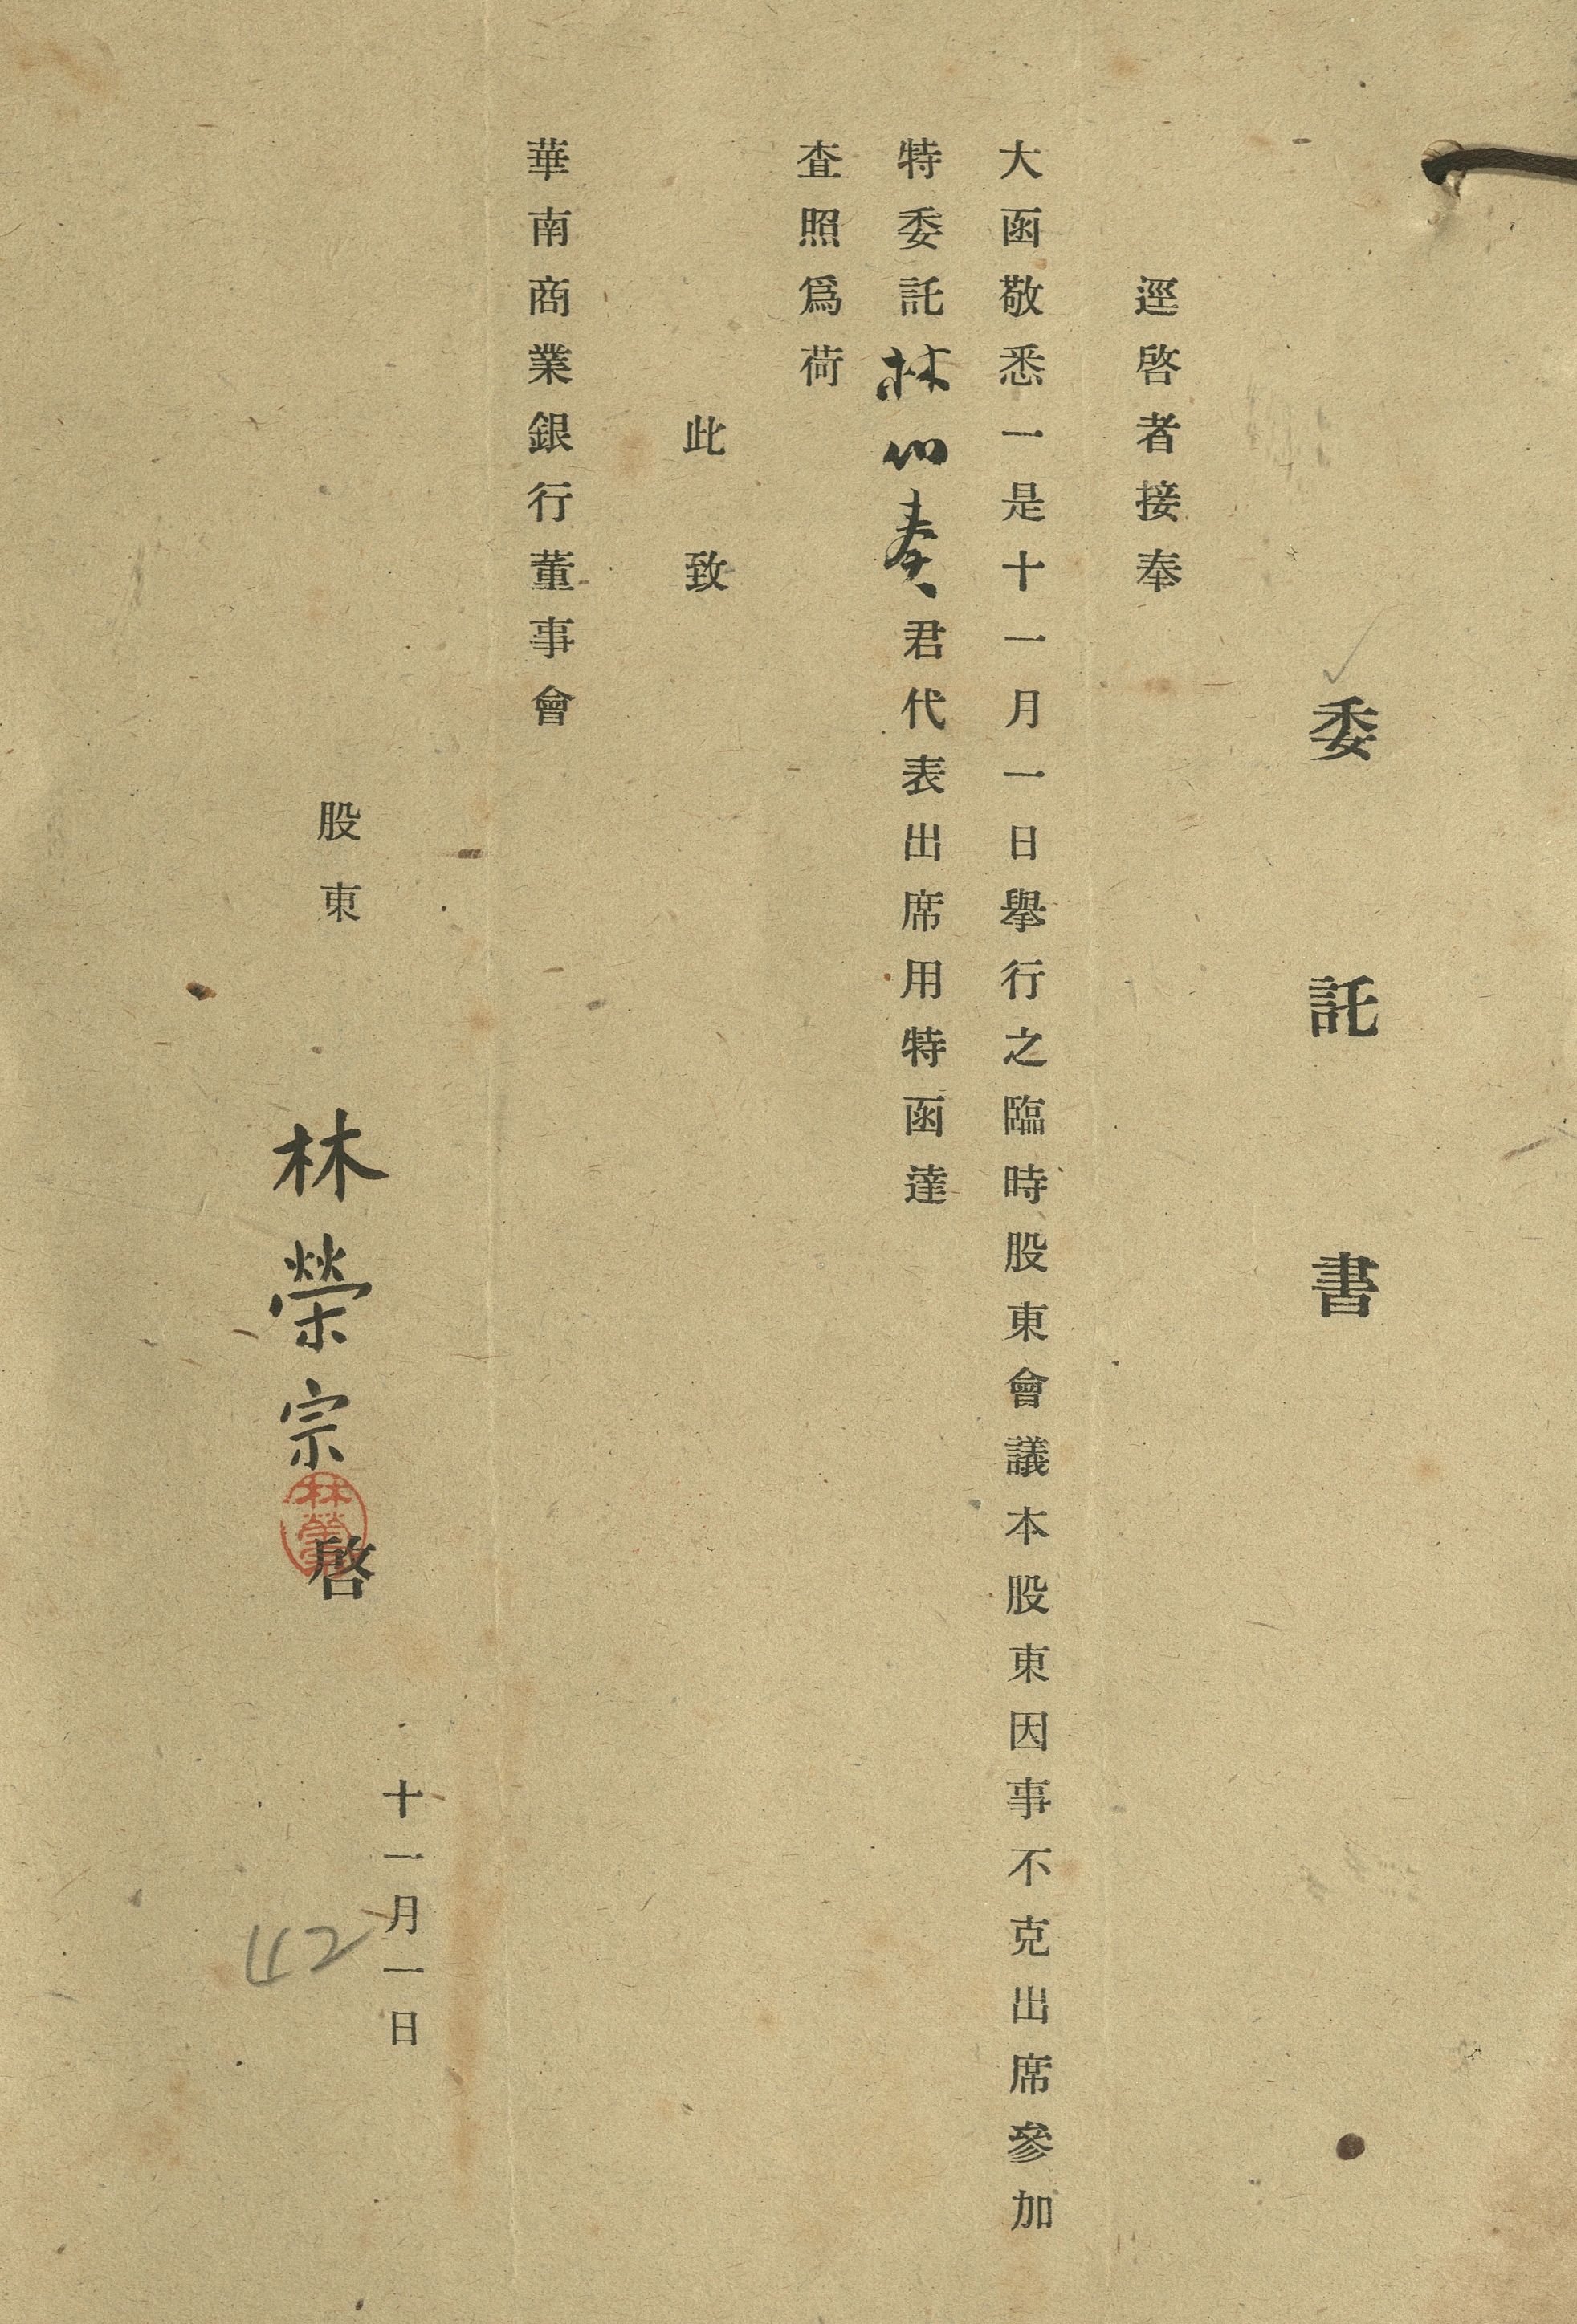 委託書
逕啓者接奉
大函敬悉一是十一月一日舉行之臨時股東會議本股東因事不克出席參加
特委託林仙奏君代表出席用特函達
查照爲荷
此致
華南商業銀行董事會
股東 林榮宗 啓
十一月一日
42